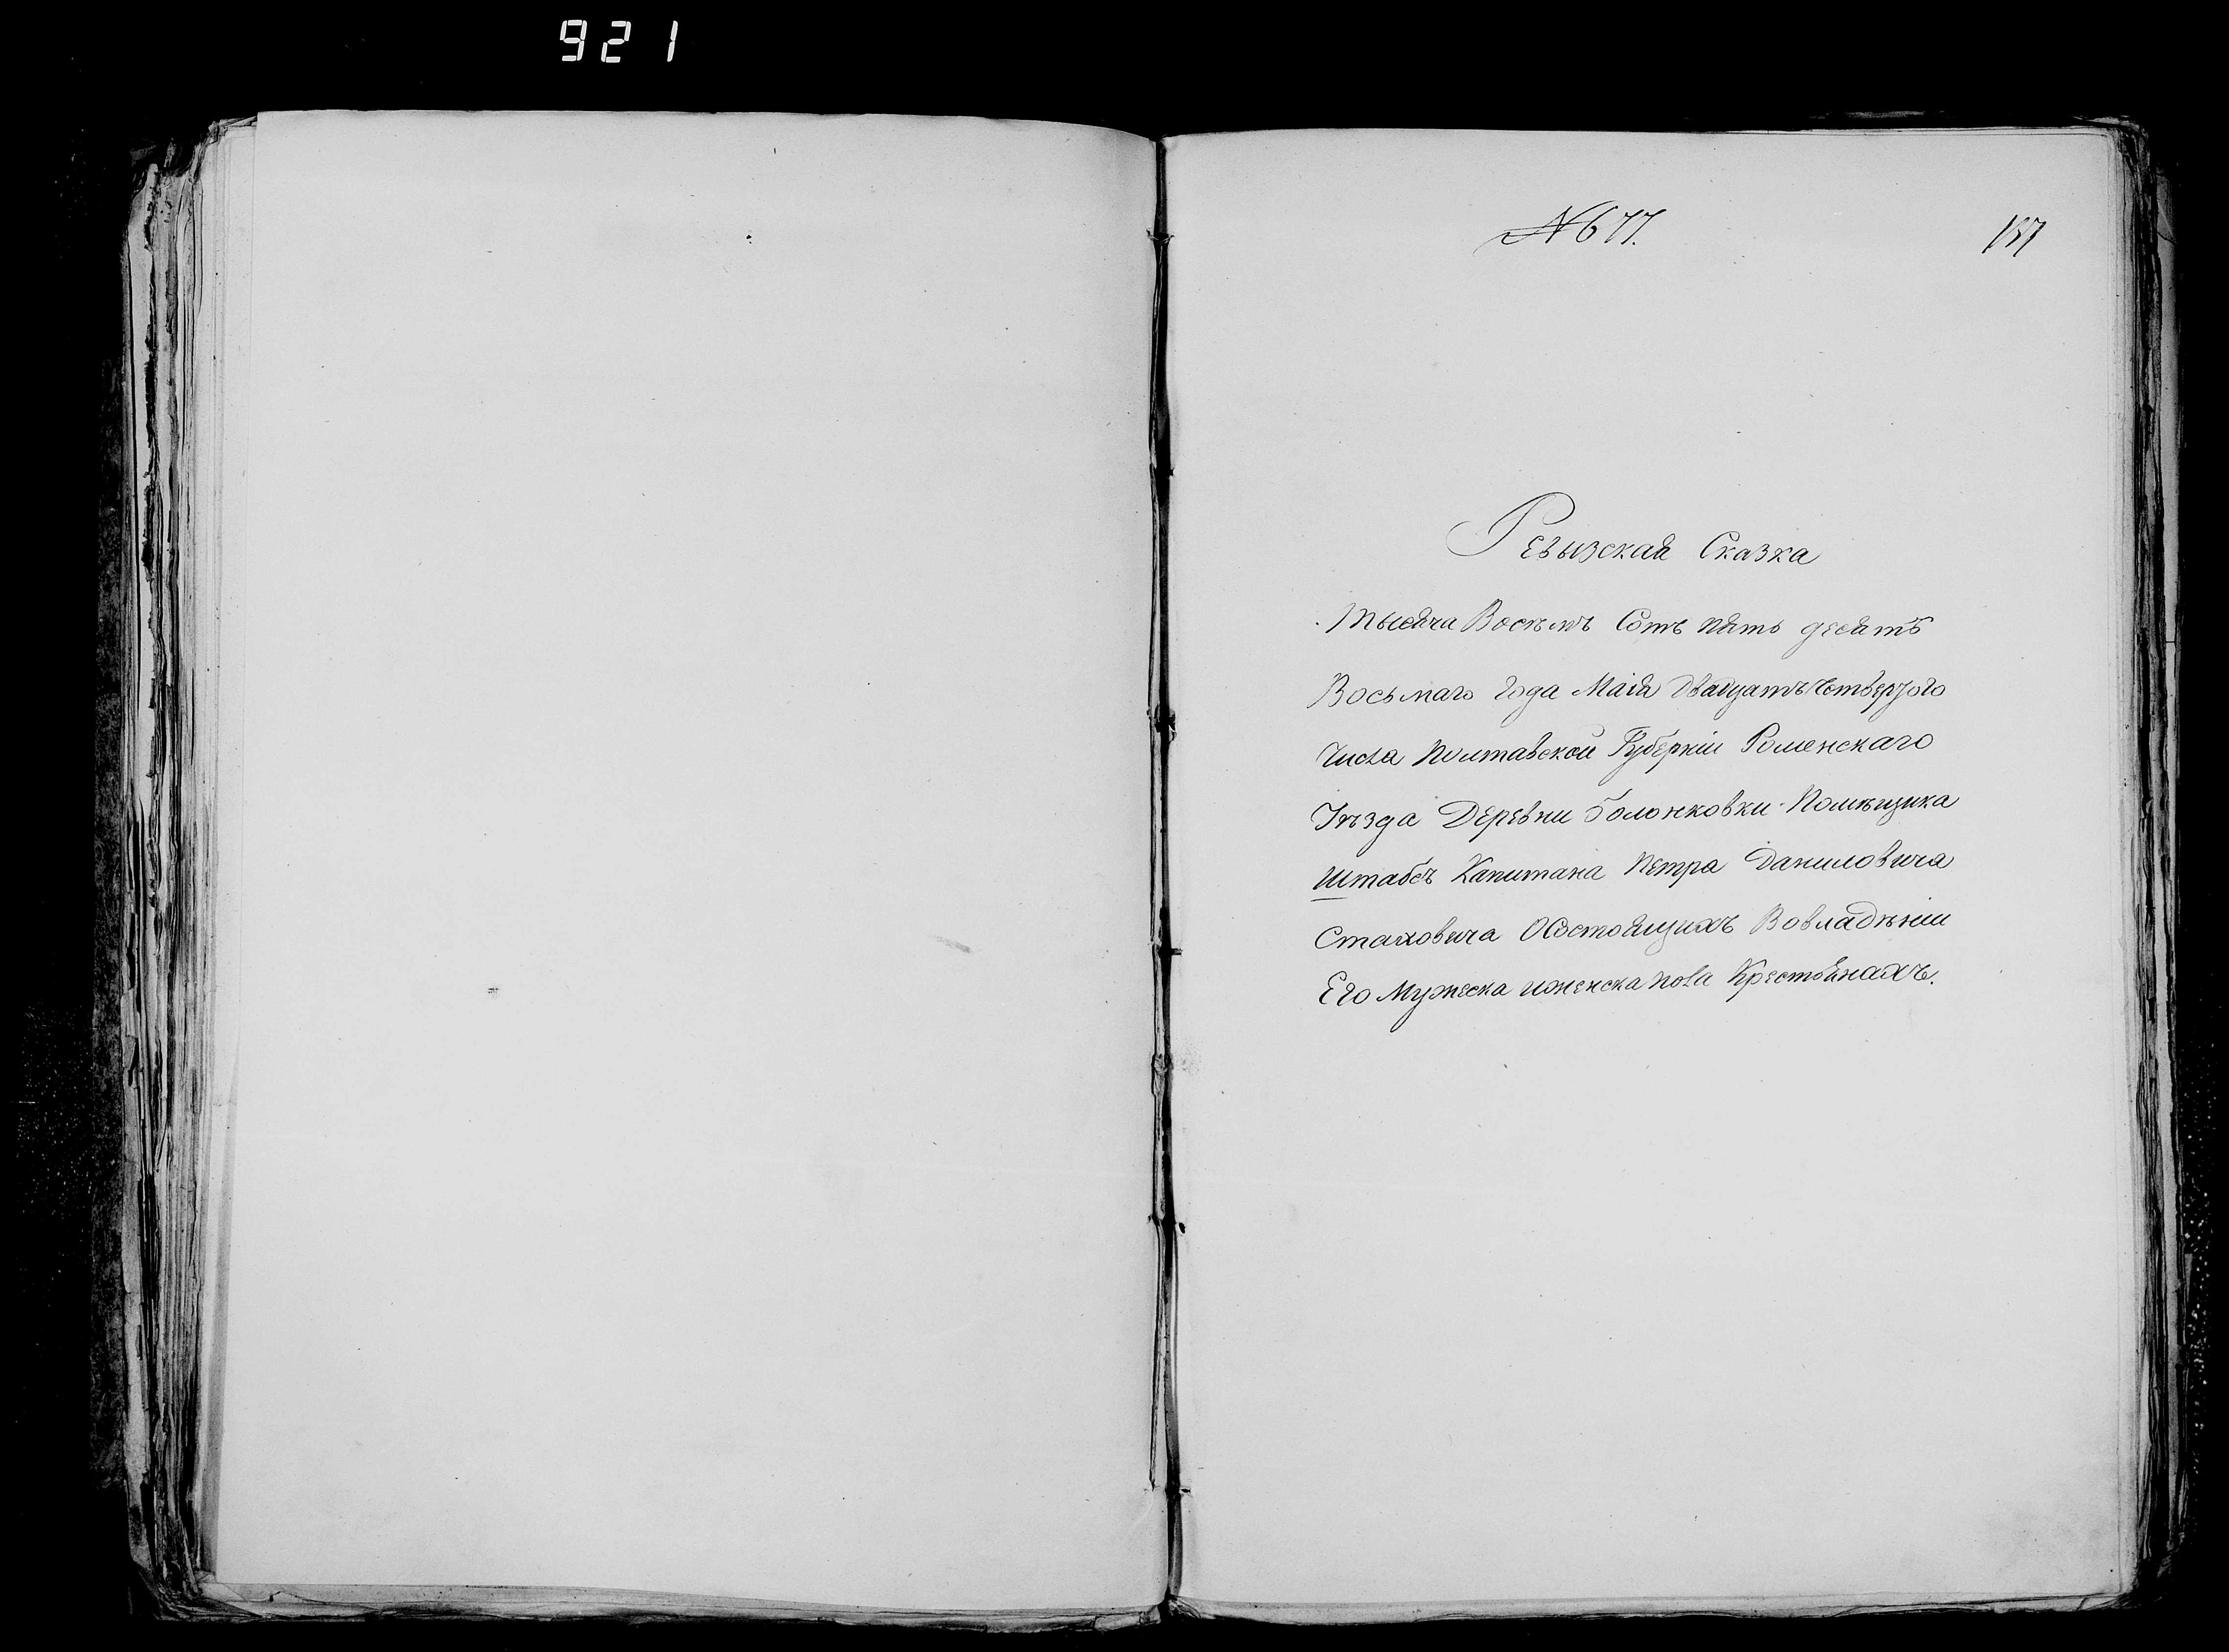 921
№ 677.
187
Ревызская Сказка
Тысяча Восѣмъ Сотъ пять десятъ
Восьмаго года Маія Двадцатъ Четвертого
Числа Полтавской Губерніи Роменскаго
Уѣзда Деревни Голонковки Помѣщика
Штабсъ Капитана Петра Даниловича
Стаховича О Состоящихъ Во владѣніи
Его Мужеска и женска пола Крестьянахъ.